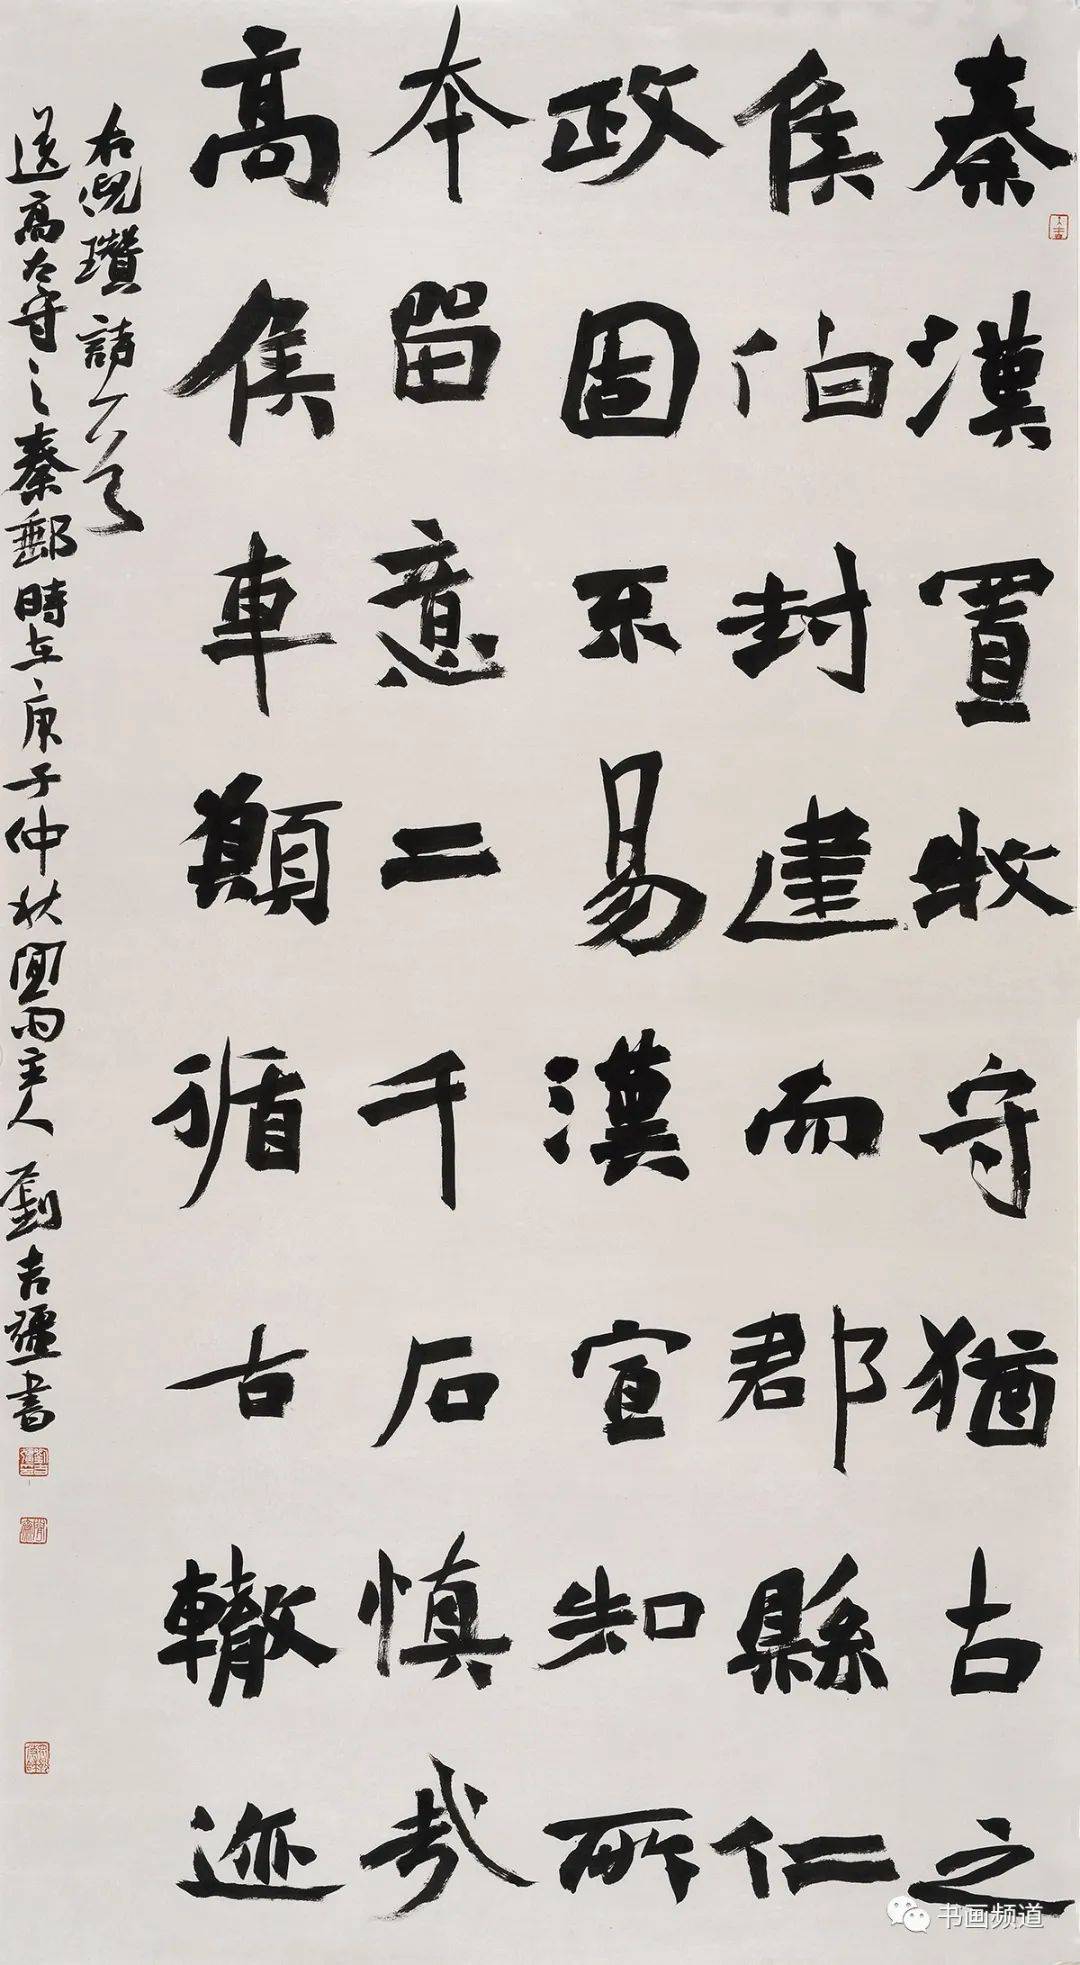 秦漢置牧守猶古之
侯伯封建而郡縣仁
政固不易漢宣知所
本留意二千石慎哉
高侯車顧循古轍迹
右倪瓚詩一首
送高太守之秦郵時在庚子仲秋聞雨主人劉吉疆書
书画频道